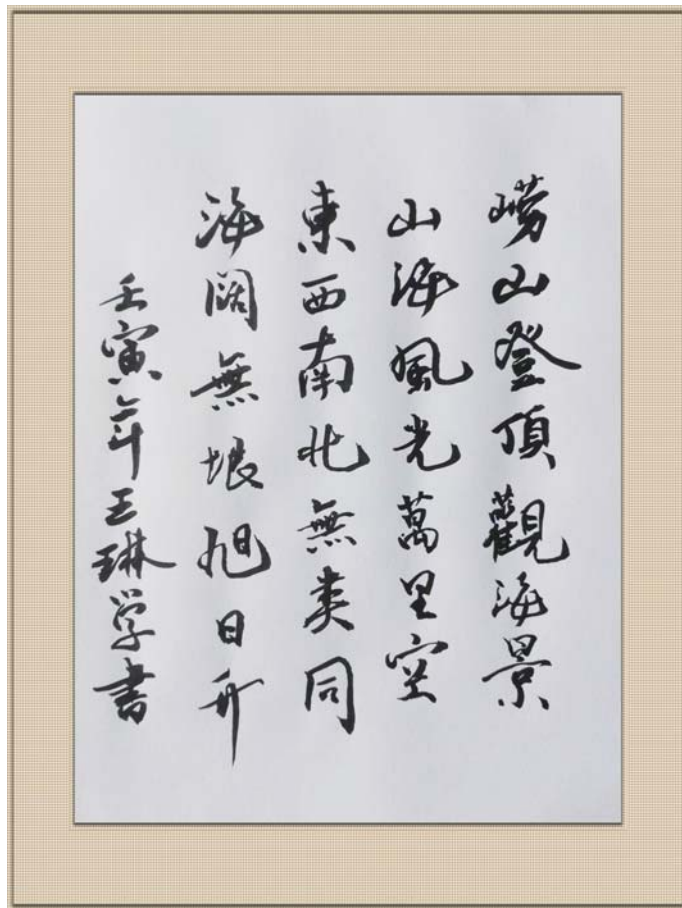 嶗山登頂觀海景
山海風光萬里空
東西南北無类同
海闊無垠旭日升
壬寅年王琳学書